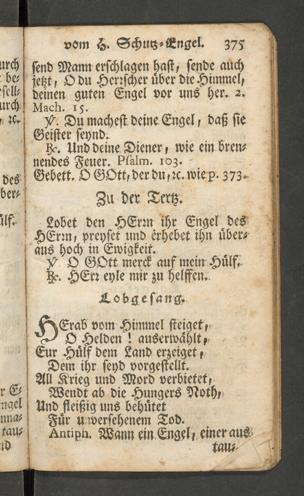 vom H. Schutz-Engel. 375
send Mann erschlagen hast, sende auch
jetzt, O du Herrscher über die Himmel,
deinen guten Engel vor uns her. 2.
Mach. 15.
℣. Du machest deine Engel, daß sie
Geister seynd.
℟. Und deine Diener, wie ein bren-
nendes Feuer. Psalm. 103.
Gebett. O GOtt, der du, ꝛc. wie p. 373.
Zu der Tertz.
Lobet den HErrn ihr Engel des
HErrn, preyset und erhebet ihn über-
aus hoch in Ewigkeit.
℣ O GOtt merck auf mein Hülf.
℟. HErr eyle mir zu helffen.
Lobgesang.
HErab vom Himmel steiget,
O Helden! auserwählt,
Eur Hülf dem Land erzeiget,
Dem ihr seyd vorgestellt.
All Krieg und Mord verbietet,
Wendt ab die Hungers Noth,
Und fleißig uns behütet
Für unversehenem Tod.
Antiph. Wann ein Engel, einer aus
tau-